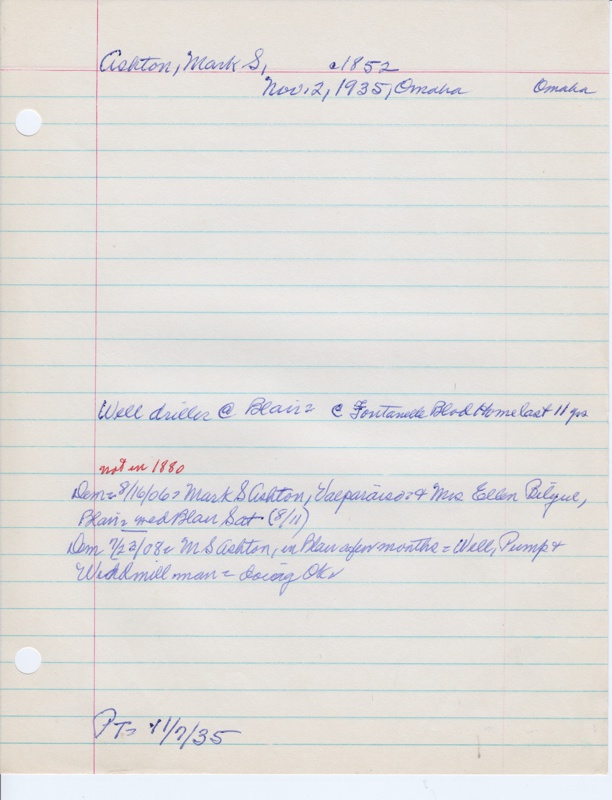 Ashton, Mark S, c1852
Nov. 2, 1935, Omaha Omaha
Well driller @ Blair = @ Fontanelle Blvd Home last 11 yrs
not in 1880
Dem = 8/16/06 = Mark S Ashton, Valparaiso = & Mrs Ellen
Blair = med Blair Sat (8/11)
Dem 7/23/08 = M S Ashton, in Blair a few months = Well, Pump &
Windmill man = doing Ok
PT = 11/7/35